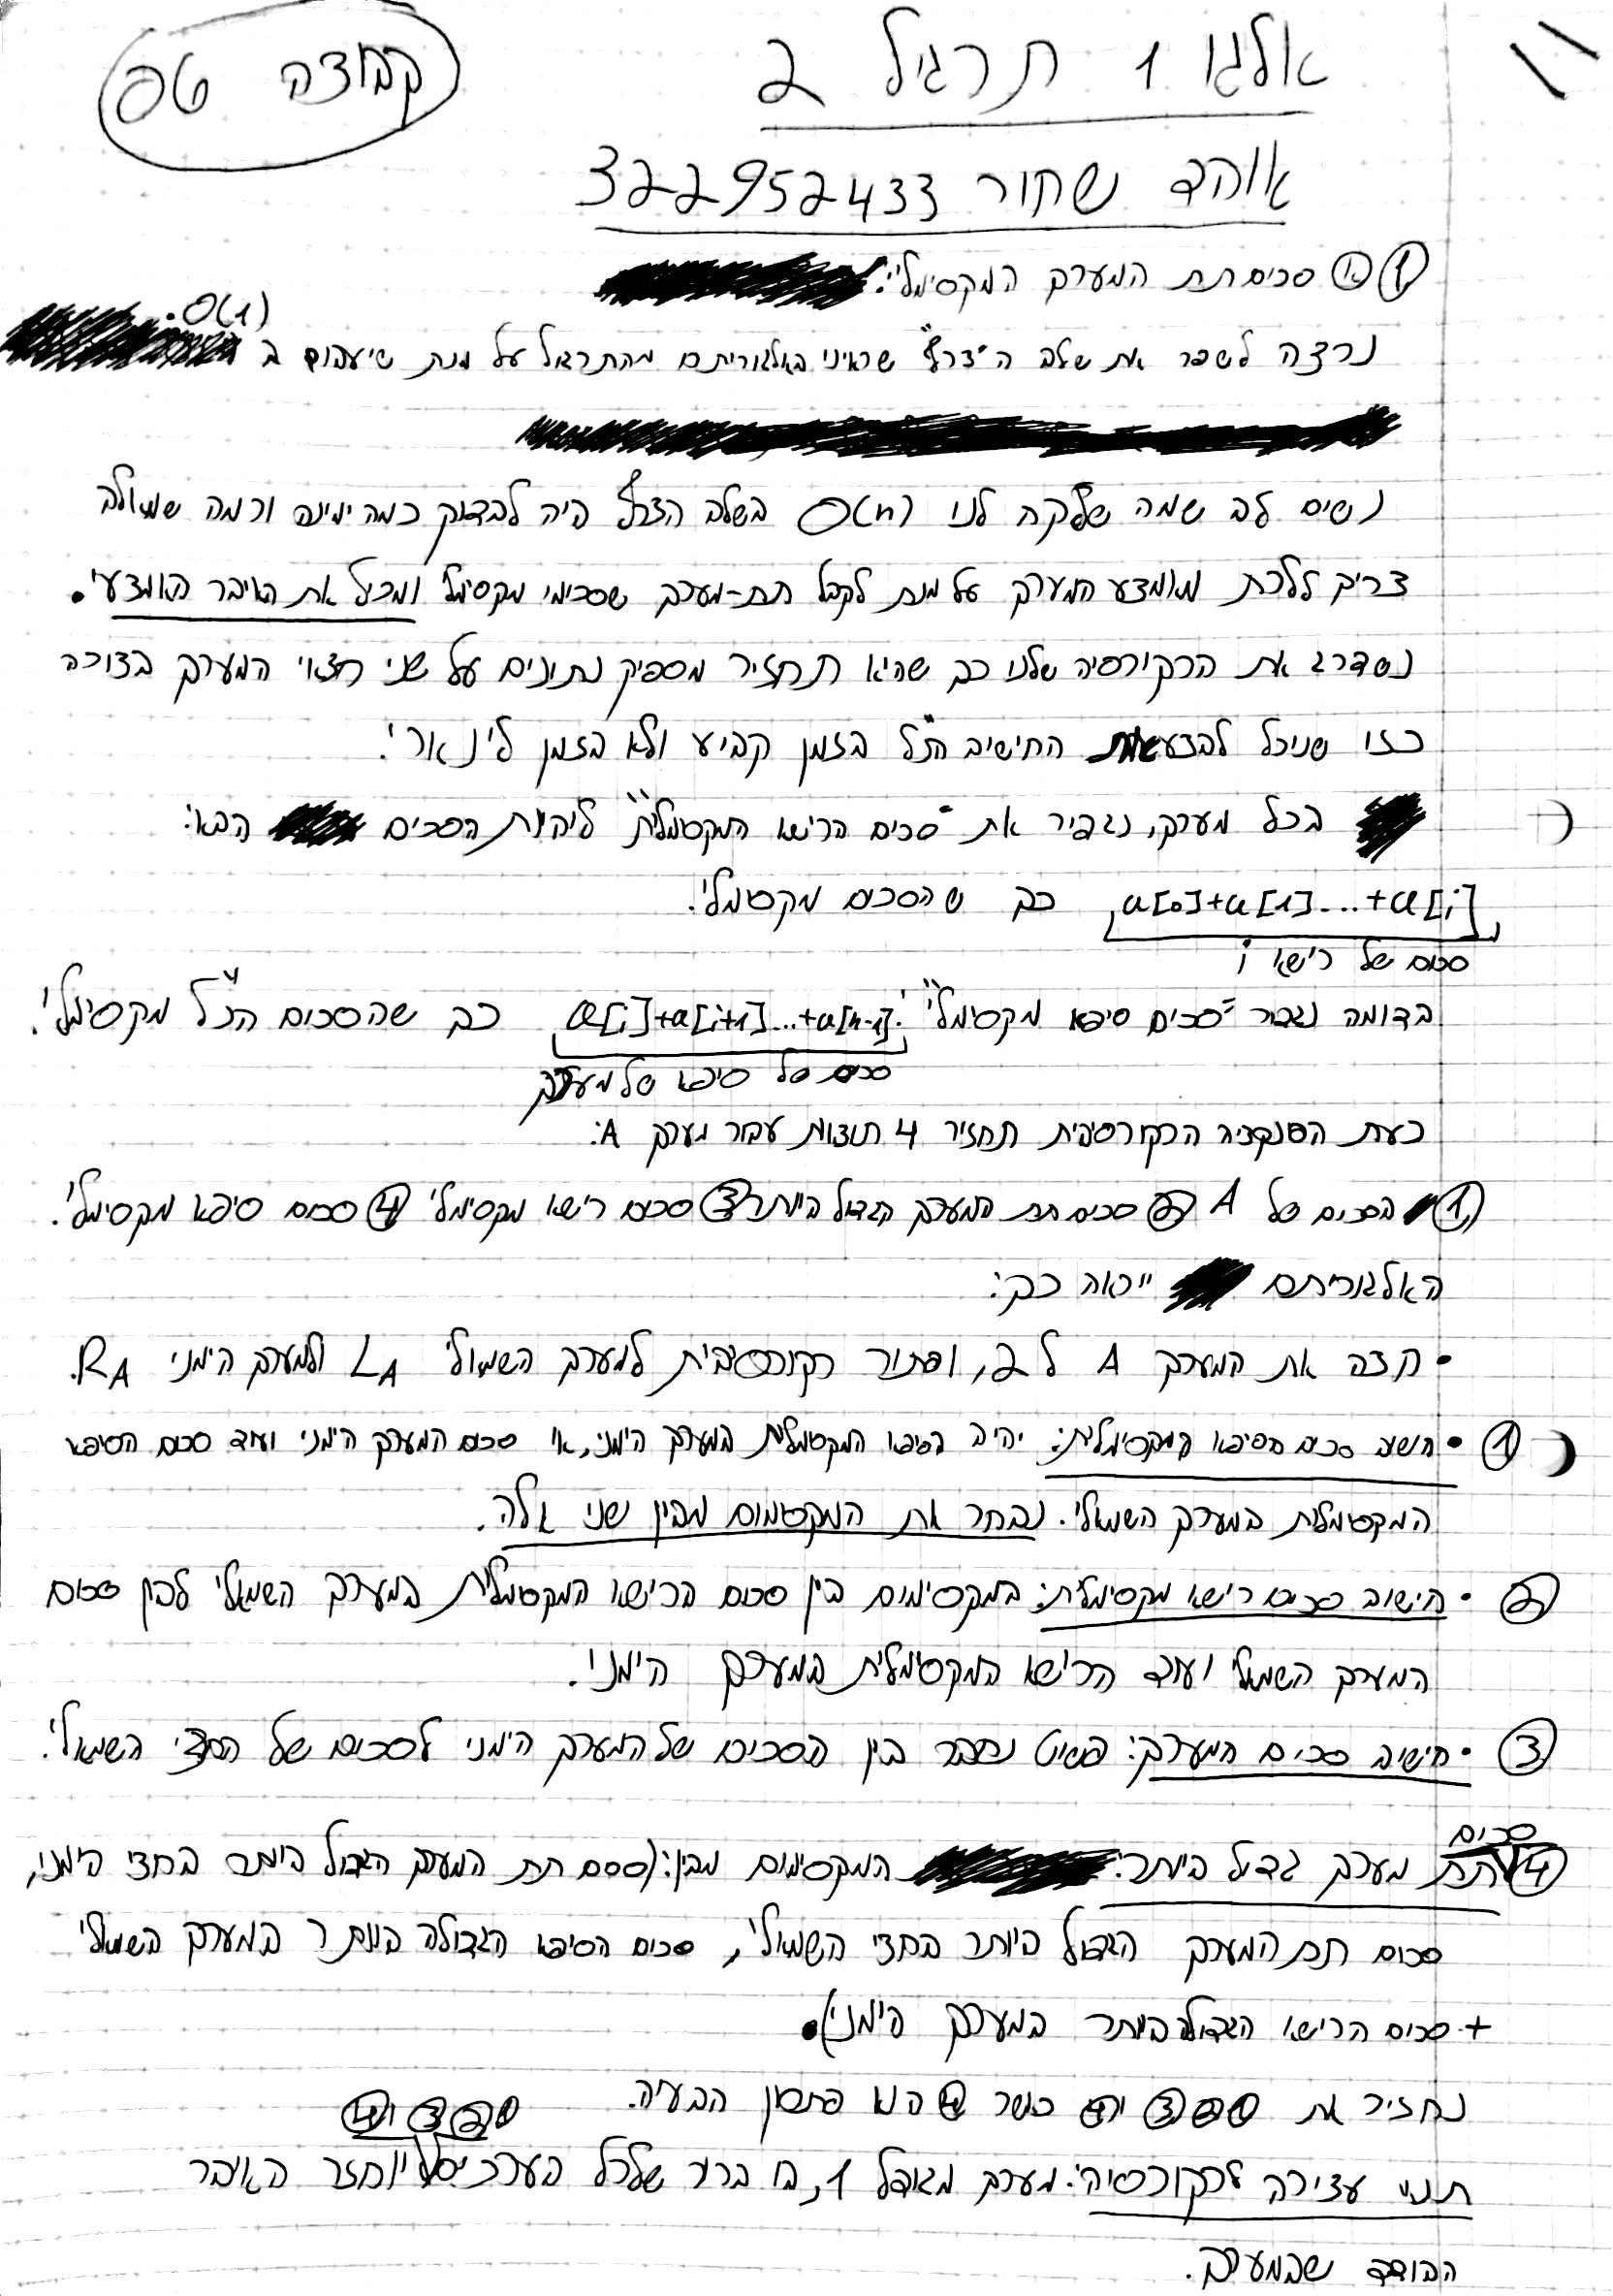 קבוצה 06
אלגו 1 תרגיל 2
אוהד שחור 322952433
1 א סכום תת המערך המקסימלי:
O(1).
נרצה לשפר את שלב ה"צרף" שראינו באלגוריתם מהתרגול על מנת שיעבוד ב
נשים לב שמה שלקח לנו O(n) בשלב הצרף היה לבדוק כמה ימינה וכמה שמאלה
צריך ללכת מאמצע המערך על מנת לקבל תת-מערך שסכומו מקסימלי ומכיל את האיבר האמצעי.
נשדרג את הרקורסיה שלנו כך שהיא תחזיר מספיק נתונים על שני חצאי המערך בצורה
כזו שנוכל לבצע את החישוב הנ"ל בזמן קבוע ולא בזמן לינארי.
בכל מערך, נגדיר את "סכום הרישא המקסימלית" להיות הסכום הבא:
a[0]+a[1]...+a[i] כך שהסכום מקסימלי.
סכום של רישא i
בדומה נגדיר "סכום סיפא מקסימלי": a[i]+a[i+1]...+a[n-1] כך שהסכום הנ"ל מקסימלי.
סכום של סיפא של מערך
כעת הפונקציה הרקורסיבית תחזיר 4 תוצאות עבור מערך A:
1 הסכום של A 2 סכום תת המערך הגדול ביותר 3 סכום רישא מקסימלי 4 סכום סיפא מקסימלי.
האלגוריתם ייראה כך:
• חצה את המערך A ל 2, ופתור רקורסיבית למערך השמאלי LA ולמערך הימני RA.
1 • חשב סכום הסיפא המקסימלית: יהיה הסיפא המקסימלית במערך הימני, או סכום המערך הימני ועוד סכום הסיפא
המקסימלית במערך השמאלי. נבחר את המקסימום מבין שני אלה.
2 • חישוב סכום רישא מקסימלית: המקסימום בין סכום הרישא המקסימלית במערך השמאלי לבין סכום
המערך השמאלי ועוד הרישא המקסימלית במערך הימני.
3 • חישוב סכום המערך: פשוט נחבר בין הסכום של המערך הימני לסכום של החצי השמאלי.
סכום
4 תת מערך גדול ביותר: המקסימום מבין: (סכום תת המערך הגדול ביותר בחצי הימני,
סכום תת המערך הגדול ביותר בחצי השמאלי, סכום הסיפא הגדולה ביותר במערך השמאלי
+ סכום הרישא הגדולה ביותר במערך הימני).
נחזיר את 1 2 3 ו4 כאשר 4 הוא פתרון הבעיה.
1 2 3 ו4
תנאי עצירה לרקורסיה: מערך מגודל 1, בו ברור שלכל הערכים יוחזר האיבר
הבודד שבמערך.